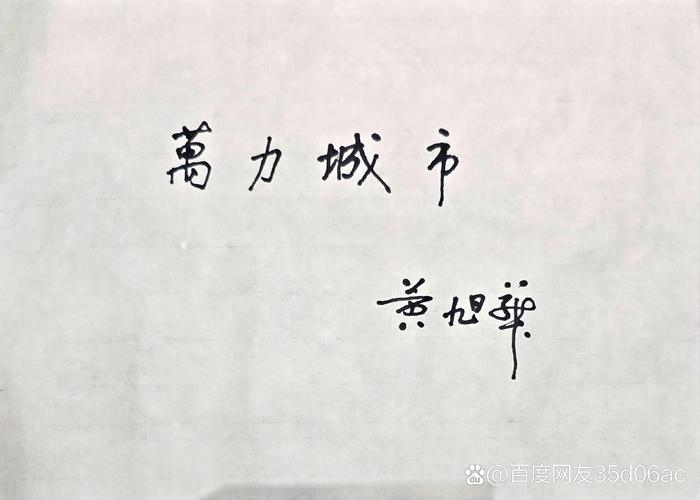 萬力城市
黄旭華
@百度网友35d06ac